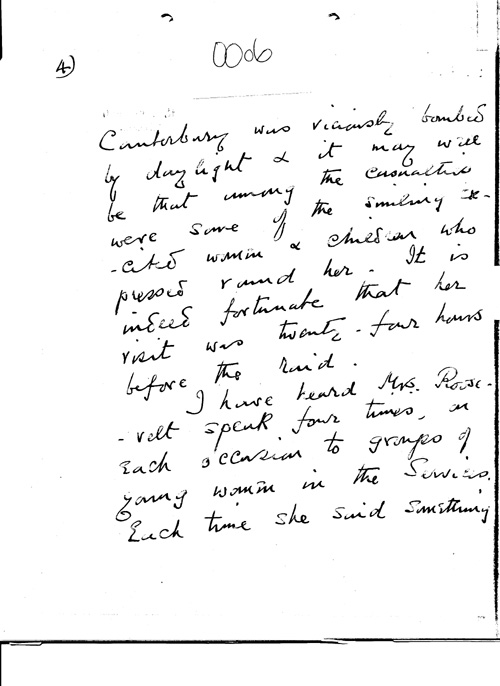 4)
0006
Canterbury was viciously bombed
by daylight & it may well
be that among the casualties
were some of the smiling ex-
-cited women & children who
pressed round her. It is
indeed fortunate that her
visit was twenty-four hours
before the raid.
I have heard Mrs. Roose-
-velt speak four times, on
each occasion to groups of
young women in the Services.
Each time she said something